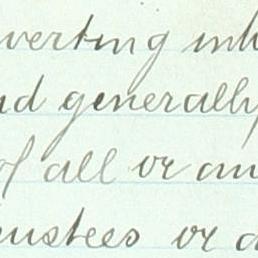 verting inh
nd generally
of all or an
rustees or a